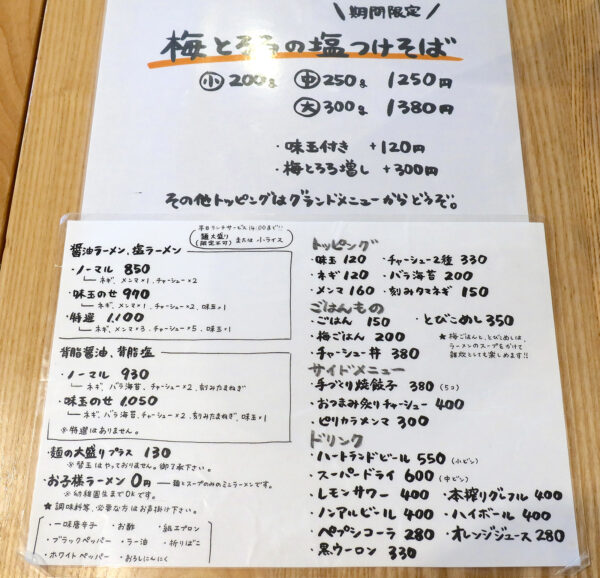 期間限定
梅とろろの塩つけそば
小 200g 中 250g 1250円
大 300g 1380円
・味玉付き +120円
・梅とろろ増し +300円
その他トッピングはグランドメニューからどうぞ。
平日ランチサービス14:00まで!!
麺大盛り または 小ライス
(限定不可)
醤油ラーメン、塩ラーメン
・ノーマル 850
ネギ、メンマ×1、チャーシュー×2
・味玉のせ 970
ネギ、メンマ×1、チャーシュー×2、味玉×1
・特選 1,100
ネギ、メンマ×3、チャーシュー×5、味玉×1
背脂醤油、背脂塩
・ノーマル 930
ネギ、バラ海苔、チャーシュー×2、刻みたまねぎ
・味玉のせ 1,050
ネギ、バラ海苔、チャーシュー×2、刻みたまねぎ、味玉×1
※特選はありません。
・麺の大盛りプラス 130
※替玉はやっておりません。御了承下さい。
・お子様ラーメン 0円 ー麺とスープのみのミニラーメンです。
※幼稚園生までOKです。
★調味料等、必要な方はお声掛け下さい。
・一味唐辛子 ・お酢 ・紙エプロン
・ブラックペッパー ・ラー油 ・折りばこ
・ホワイトペッパー ・おろしにんにく
トッピング
・味玉 120 ・チャーシュー2種 330
・ネギ 120 ・バラ海苔 200
・メンマ 160 ・刻みタマネギ 150
ごはんもの
・ごはん 150 ・とびこめし 350
・梅ごはん 200
・チャーシュー丼 380
★梅ごはん、とびこめしは、
ラーメンのスープをかけて
雑炊としても楽しめます!!
サイドメニュー
・手づくり焼餃子 380 (5コ)
・おつまみ炙りチャーシュー 400
・ピリカラメンマ 300
ドリンク
・ハートランドビール 550 (小ビン)
・スーパードライ 600 (中ビン)
・レモンサワー 400 ・本搾りグレフル 400
・ノンアルビール 400 ・ハイボール 400
・ペプシコーラ 280 ・オレンジジュース 280
・黒ウーロン 330